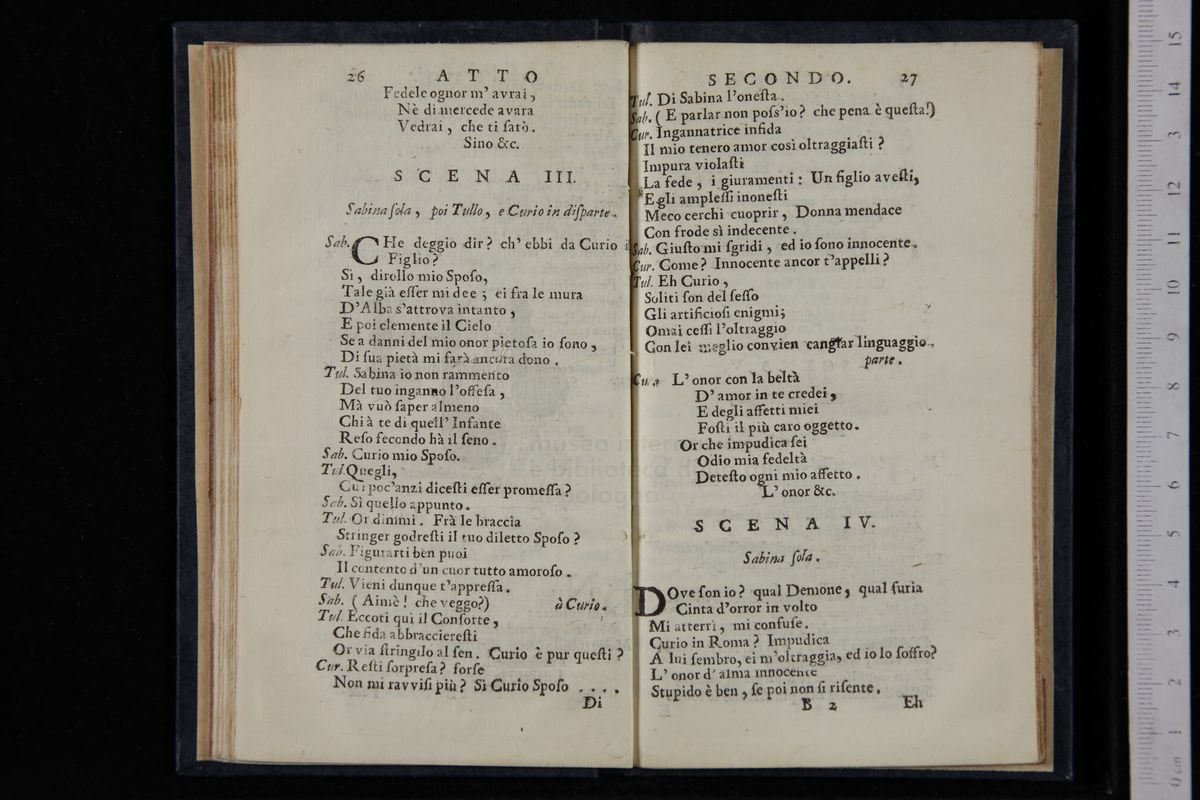 26 ATTO
Fedele ognor m' avrai,
Nè di mercede avara
Vedrai, che ti sarò.
Sino &c.
SCENA III.
Sabina ſola, poi Tullo, e Curio in diſparte.
Sab. CHe deggio dir? ch' ebbi da Curio i
Figlio?
Sì, dirollo mio Spoſo,
Tale già eſſer mi dee; ei fra le mura
D'Alba s'attrova intanto,
E poi clemente il Cielo
Se a danni del mio onor pietoſa io ſono,
Di ſua pietà mi farà ancora dono.
Tul. Sabina io non rammento
Del tuo inganno l'offeſa,
Mà vuò ſaper almeno
Chi à te di quell' Infante
Reſo fecondo hà il ſeno.
Sab. Curio mio Spoſo.
Tul. Quegli,
Cui poc'anzi diceſti eſſer promeſſa?
Sab. Sì quello appunto.
Tul. Or dimmi. Frà le braccia
Stringer godreſti il tuo diletto Spoſo?
Sab. Figurarti ben puoi
Il contento d'un cuor tutto amoroſo.
Tul. Vieni dunque t'appreſſa.
Sab. (Aimè! che veggo?) à Curio.
Tul. Eccoti qui il Conſorte,
Che fida abbracciereſti
Or via ſtringilo al ſen. Curio è pur queſti?
Cur. Reſti ſorpreſa? forſe
Non mi ravviſi più? Sì Curio Spoſo ....
Di
SECONDO. 27
Tul. Di Sabina l'oneſta.
Sab. (E parlar non poſs'io? che pena è queſta!)
Cur. Ingannatrice infida
Il mio tenero amor così oltraggiaſti?
Impura violaſti
La fede, i giuramenti: Un figlio aveſti,
E gli ampleſſi inoneſti
Meco cerchi cuoprir, Donna mendace
Con frode sì indecente.
Sab. Giuſto mi ſgridi, ed io ſono innocente.
Cur. Come? Innocente ancor t'appelli?
Tul. Eh Curio,
Soliti ſon del ſeſſo
Gli artificioſi enigmi;
Omai ceſſi l'oltraggio
Con lei meglio convien cangiar linguaggio.
parte.
Cur. L' onor con la beltà
D' amor in te credei,
E degli affetti miei
Foſti il più caro oggetto.
Or che impudica ſei
Odio mia fedeltà
Deteſto ogni mio affetto.
L' onor &c.
SCENA IV.
Sabina ſola.
DOve ſon io? qual Demone, qual furia
Cinta d'orror in volto
Mi atterrì, mi confuſe.
Curio in Roma? Impudica
A lui ſembro, ei m'oltraggia, ed io lo ſoffro?
L' onor d' alma innocente
Stupido è ben, ſe poi non ſi riſente.
B 2 Eh